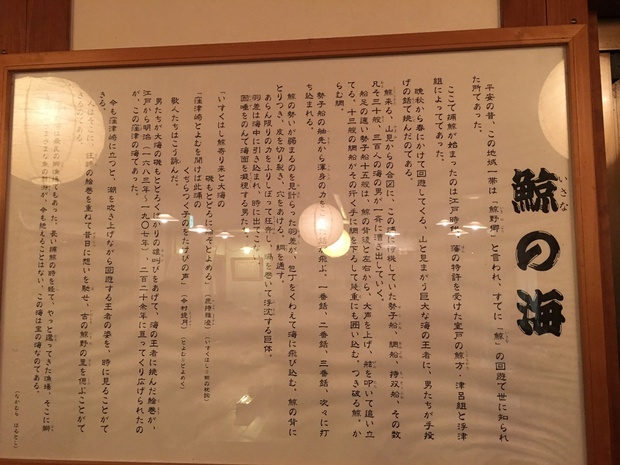 いさな
鯨の海
平安の昔、この地域一帯は「鯨野郷」と言われ、すでに「鯨」の回遊で世に知られ
た所であった。
ここで捕鯨が始まったのは江戸時代、藩の特許を受けた室戸の鯨方、津呂組と浮津
組によってであった。
晩秋から春にかけて回遊してくる、山と見まがう巨大な海の王者に、男たちが手投
げの銛で挑んだのである。
鯨来る、山見からの合図に、この浦に待機していた勢子船、網船、持双船、その数
凡そ三十艘、三百人の海の男が一斉に漕ぎ出していく。
船足の速い勢子船十五艘は、鯨の背後と左右から、大声を上げ、舷を叩いて追い立
てる。十三艘の網船がその行く手に網を下ろして幾重にも囲い込む。つき破る鯨、か
らむ網。
勢子船の舳先から渾身の力をこめて銛が飛ぶ。一番銛、二番銛、三番銛、次々に打
ち込まれる。
鯨の勢いが弱まるのを見計らった羽差が、包丁をくわえて海に飛び込む。鯨の背に
とりつき、皮を切り裂き、穴をあける。綱を通す。
あらん限りの力をふりしぼって狂奔し、渦を巻いて浮沈する巨体。
羽差は海中に引き込まれ、時に出てこない。
固唾をのんで海面を凝視する男たち。
「いすくはし鯨寄り来と大海の
磯もとどろに海そとよめる」
「窪津崎とよむを聞けば此浦の
くぢらつく子のをたけびの声」
歌人たちはこう詠んだ。
男たちが大海の磯もとどろくばかりの雄叫びをあげて、海の王者に挑んだ絵巻が、
江戸から明治(一六八三年〜一九〇七年)、二百二十余年に亘ってくり広げられたの
が、この窪津の海であった。
今も窪津崎に立つと、潮を吹き上げながら回遊する王者の姿を、時に見ることがで
きる。
人はそこに、往時の絵巻を重ねて昔日に想いを馳せ、古の鯨野の里を偲ぶことがで
きるのである。
長い捕鯨の時を経て、やっと還ってきた漁場、そこに鰤
今も絶えることはない。この海は宝の海なのである。